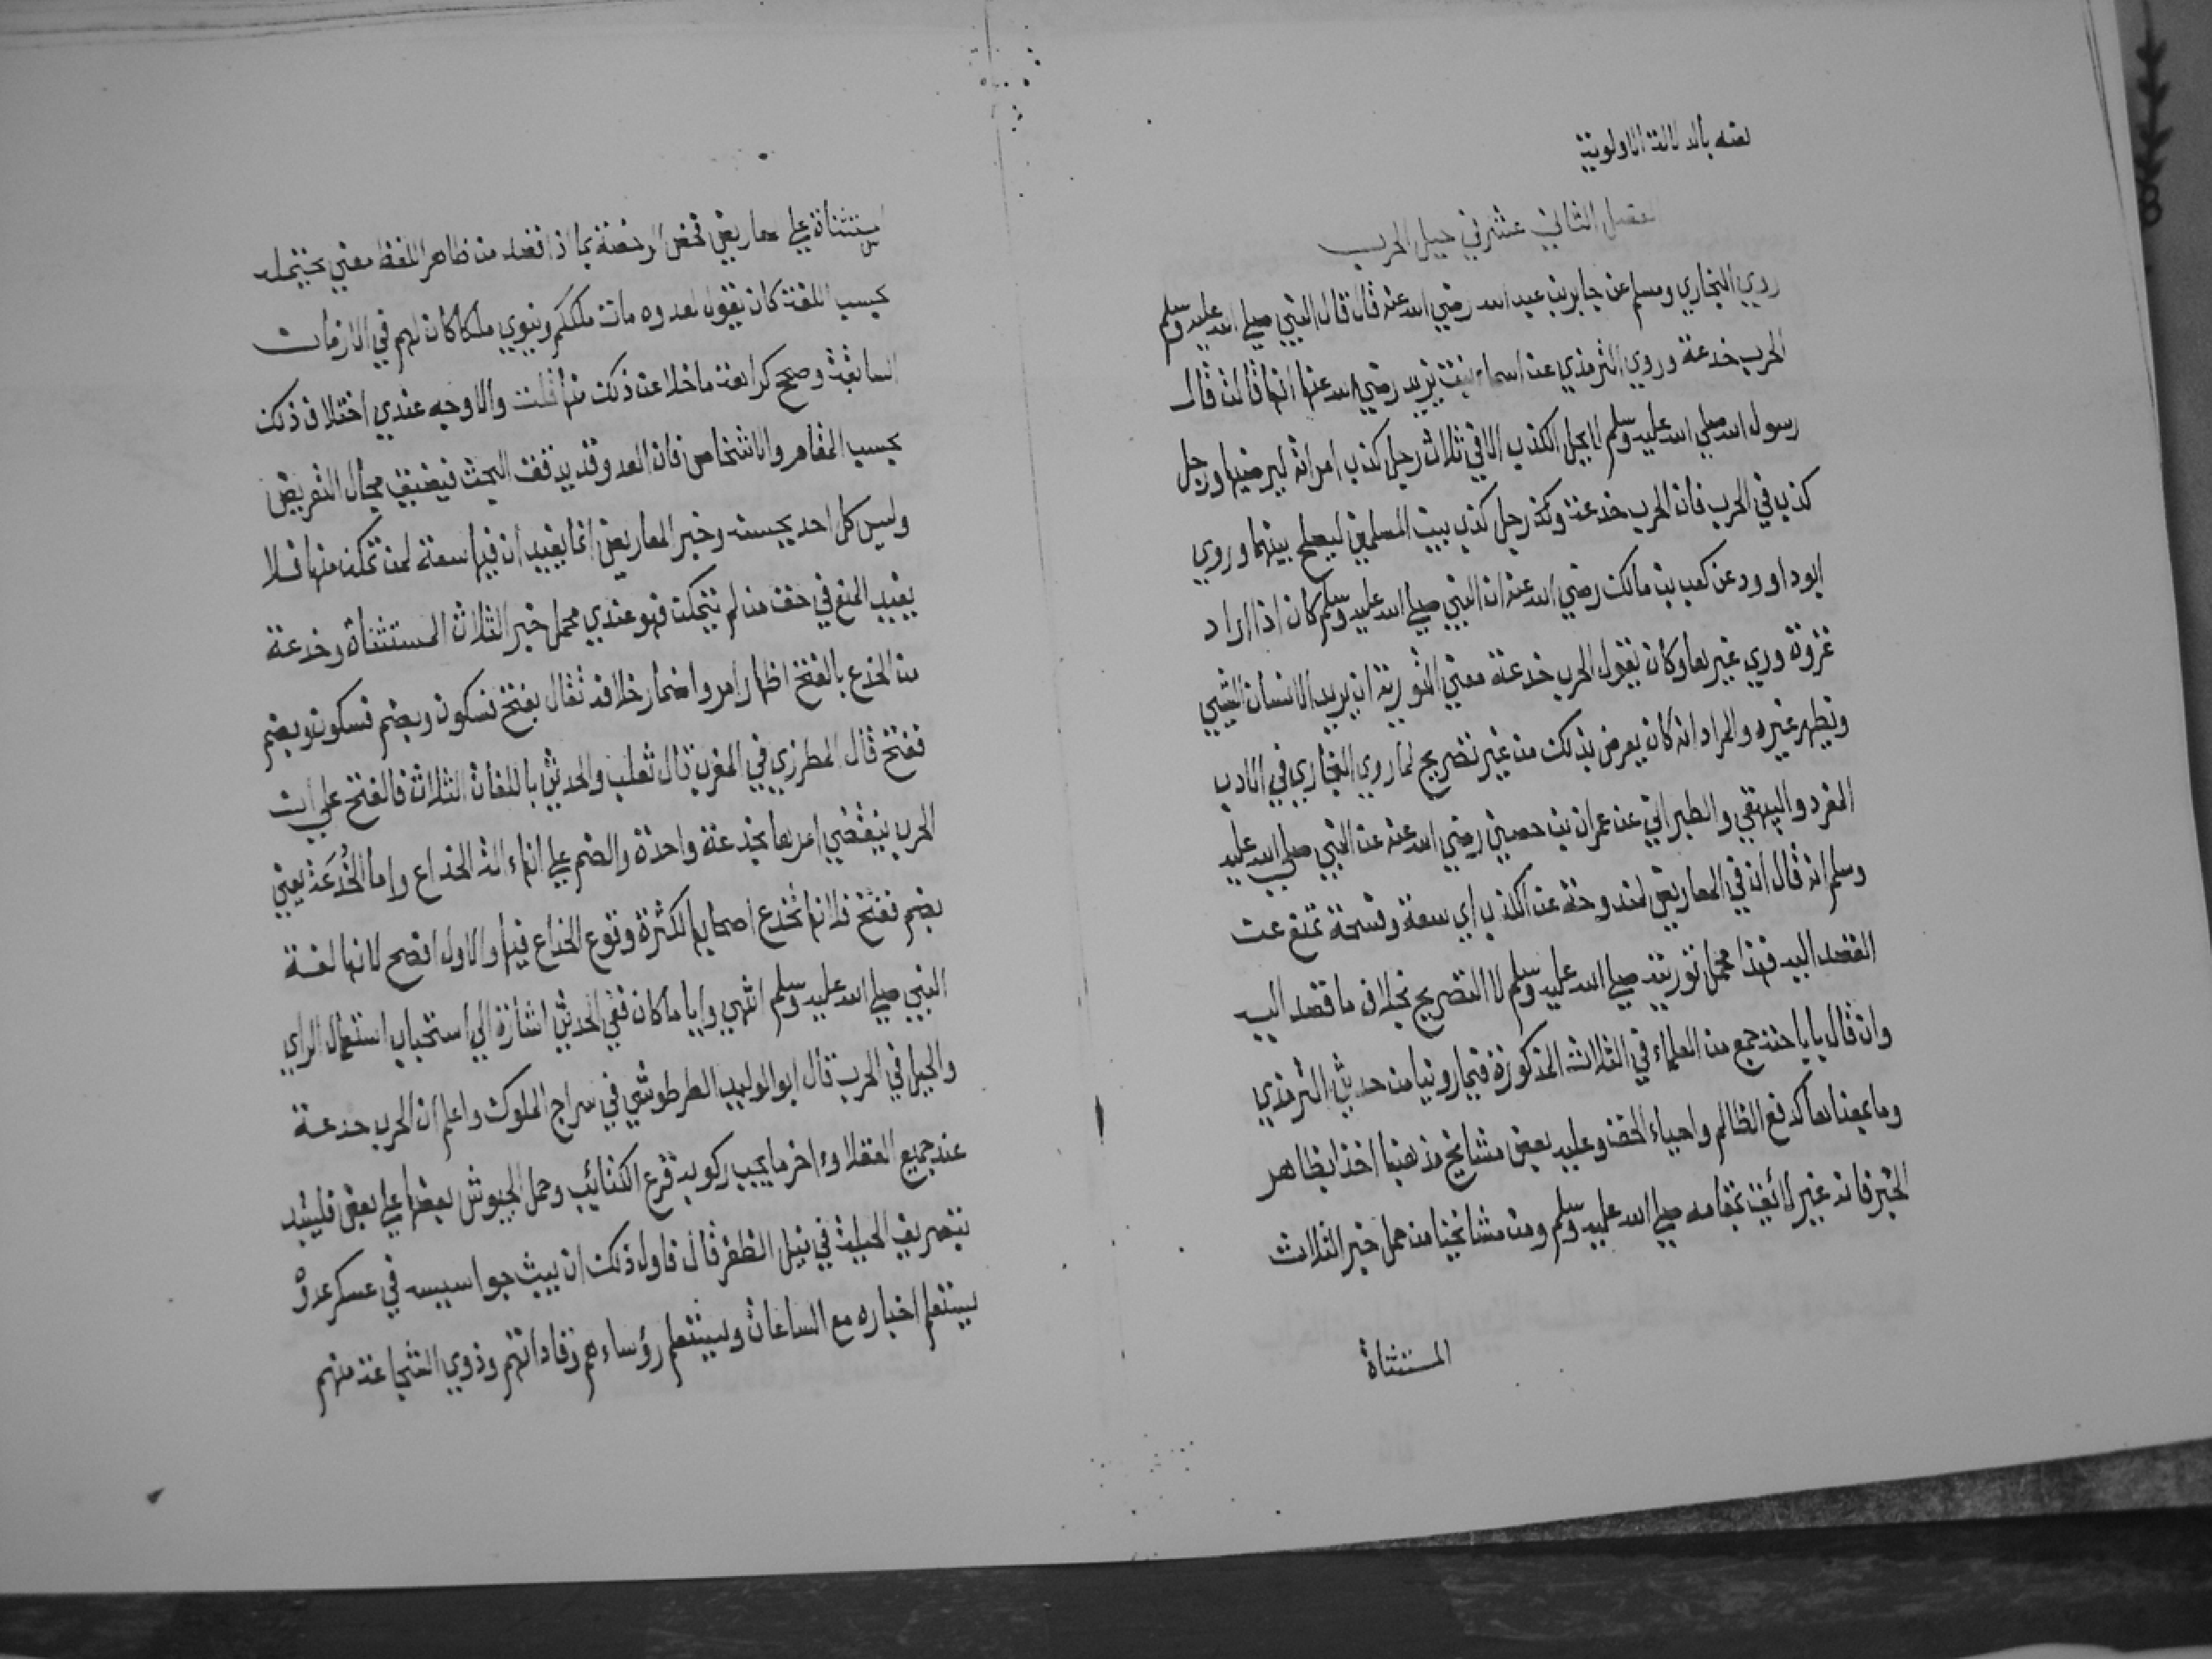 لعنه بالدلالة الاولوية
الفصل الثاني عشر في حيل الحرب
روي البخاري ومسلم عن جابر بن عبد الله رضي الله عنه قال قال النبي صلي الله عليه وسلم
الحرب خدعة وروي الترمذي عن اسماء بنت يزيد رضي الله عنها انها قالت قال
رسول الله صلي الله عليه وسلم لا يحل الكذب الا في ثلاث رجل كذب امراته ليرضيها ورجل
كذب في الحرب فان الحرب خدعة ورجل كذب بين المسلمين ليصلح بينهما وروي
ابو داوود عن كعب بن مالك رضي الله عنه ان النبي صلي الله عليه وسلم كان اذا اراد
غزوة وري غيرها وكان يقول الحرب خدعة معني التورية ان يريد الانسان الشيي
ويظهر غيره والمراد انه كان يعرض بذلك من غير تصريح لما روي البخاري في الادب
المفرد والبيهقي والطبراني عن عمران بن حصين رضي الله عنه عن النبي صلي الله عليه
وسلم انه قال ان في المعاريض لمندوحة عن الكذب اي سعة وفسحة تمنع عن
القصد اليه فهذا محمل توريته صلي الله عليه وسلم لا التصريح بخلاف ما قصد اليه
وان قال باباحته جمع من العلماء في الثلاثة المذكورة فيما روينا من حديث الترمذي
وما بمعناها كدفع الظالم واحياء الحق وعليه بعض مشايخ مذهبنا اخذا بظاهر
الخبر فانه غير لائق بمقامه صلي الله عليه وسلم ومن مشايخنا من حمل خبر الثلاث
المستثناة
المستثناة علي معاريض فخص الرخصة بما اذا قصد من ظاهر اللفظ معني يحتمله
بحسب اللغة كان يقول لعدوه مات ملككم وينوي ملكا كان لهم في الازمان
السابقة وصحح كراهة ما خلا عن ذلك منها قلت والاوجه عندي اختلاف ذلك
بحسب المقام والاشخاص فان العدو قد يدقق البحث فيضيق مجال التعريض
وليس كل احد يحسنه وخبر المعاريض انما يفيد ان فيها سعة لمن تمكن منها فلا
يفيد المنع في حق من لم يتمكن فهو عندي محمل خبر الثلاث المستثناة وخدعة
من الخدع بالفتح اظهار امر واضمار خلافه تقال بفتح فسكون وبضم فسكون وبضم
ففتح قال المطرزي في المغرب قال ثعلب والحديث باللغات الثلاث فالفتح علي ان
الحرب ينقضي امرها بخدعة واحدة والضم علي انها ءالة الخداع واما الخُدَعَة يعني
بضم ففتح فلانها تخدع اصحابها لكثرة وقوع الخداع فيها والاول افصح لانها لغة
النبي صلي الله عليه وسلم انتهي وايا ما كان ففي الحديث اشارة الي استحباب استعمال الراي
والحيل في الحرب قال ابو الوليد الطرطوشي في سراج الملوك واعلم ان الحرب خدعة
عند جميع العقلاء وءاخر ما يجب ركوبه قرع الكتائب وحمل الجيوش بعضها علي بعض فليبد
بتصريف الحيلة في نيل الظفر قال فاول ذلك ان يبث جواسيسه في عسكر عدوه
يستعلم اخباره مع الساعات ويستعلم رؤساءهم وقاداتهم وذوي الشجاعة منهم